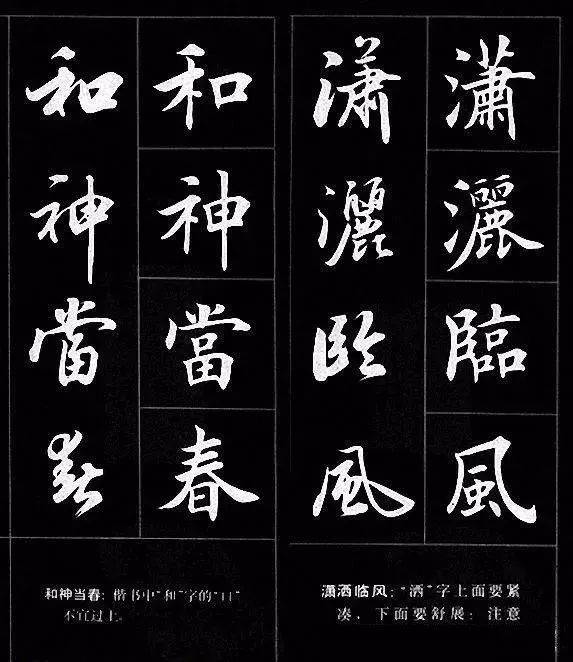 瀟灑臨風
瀟灑臨風
和神當春
和神當春
潇洒临风:“洒”字上面要紧
凑,下面要舒展;注意
和神当春:楷书中“和”字的“口”
不宜过上。